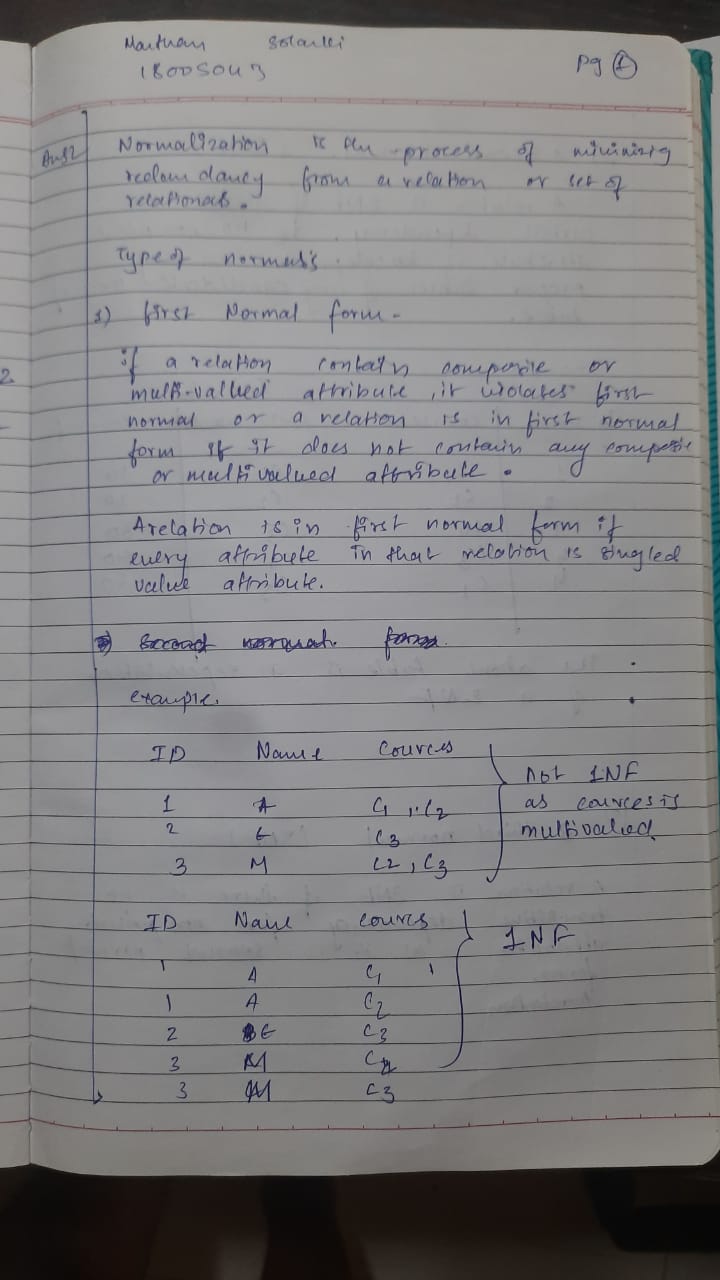 Solanki
pg 1
Ans2 Normalization is an process of minimizig
redundancy from a relation or set of
relationals.
Type of normals.
1) first Normal form -
if a relation contain composite or
multi-valued attribute, it violates first
normal or a relation is in first normal
form if it does not contain any composite
or multivalued attribute.
A relation is in first normal form if
every attribute in that relation is singled
value attribute.
2) Second normal form.
example.
ID Name Cources
1 A C1, C2
2 E C3
3 M C2, C3
not 1NF
as cources is
multivalued
ID Name Cources
1 A C1
1 A C2
2 E C3
3 M C2
3 M C3
1NF
2